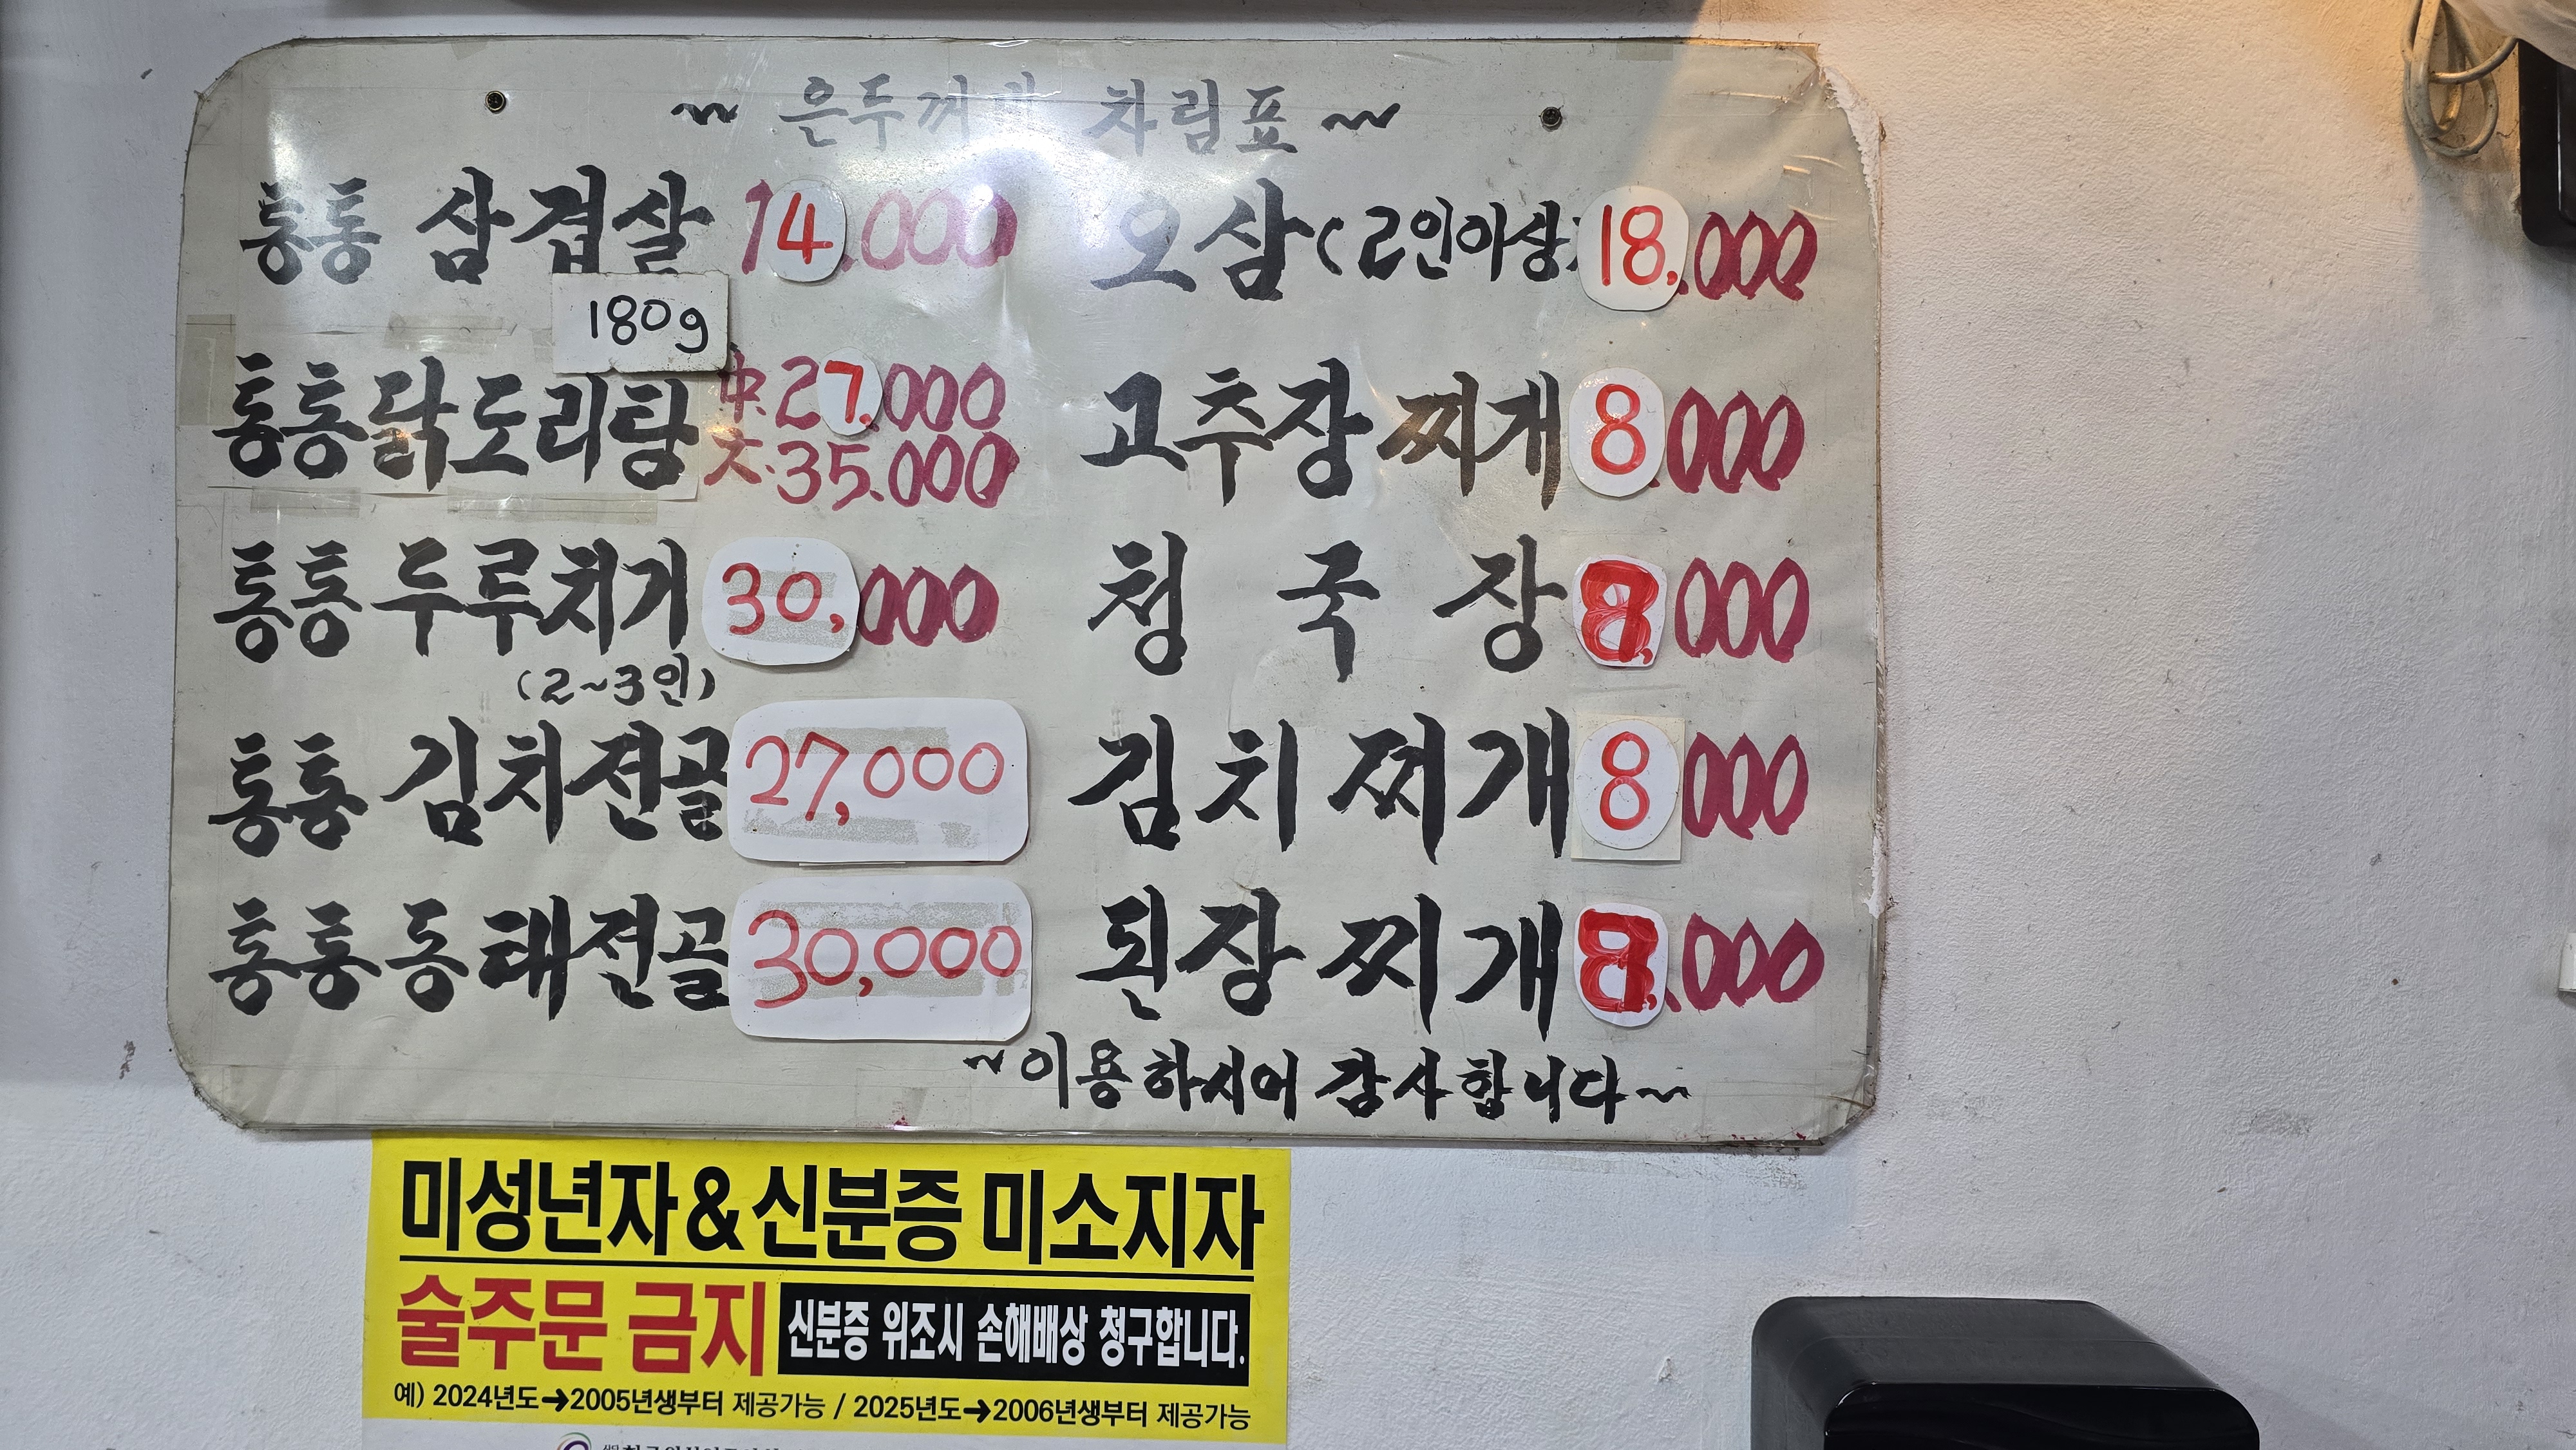 ~ 은두꺼비 차림표 ~
통통 삼겹살 14.000
180g
통통닭도리탕 中.27.000
大.35.000
통통 두루치기 30,000
(2~3인)
통통 김치전골 27,000
통통 동태전골 30,000
오삼(2인이상) 18,000
고추장찌개 8.000
청국장 8,000
김치찌개 8 000
된장찌개 8,000
~이용하시어 감사합니다~
미성년자&신분증 미소지자
술주문 금지 신분증 위조시 손해배상 청구합니다.
예) 2024년도➔2005년생부터 제공가능 / 2025년도➔2006년생부터 제공가능